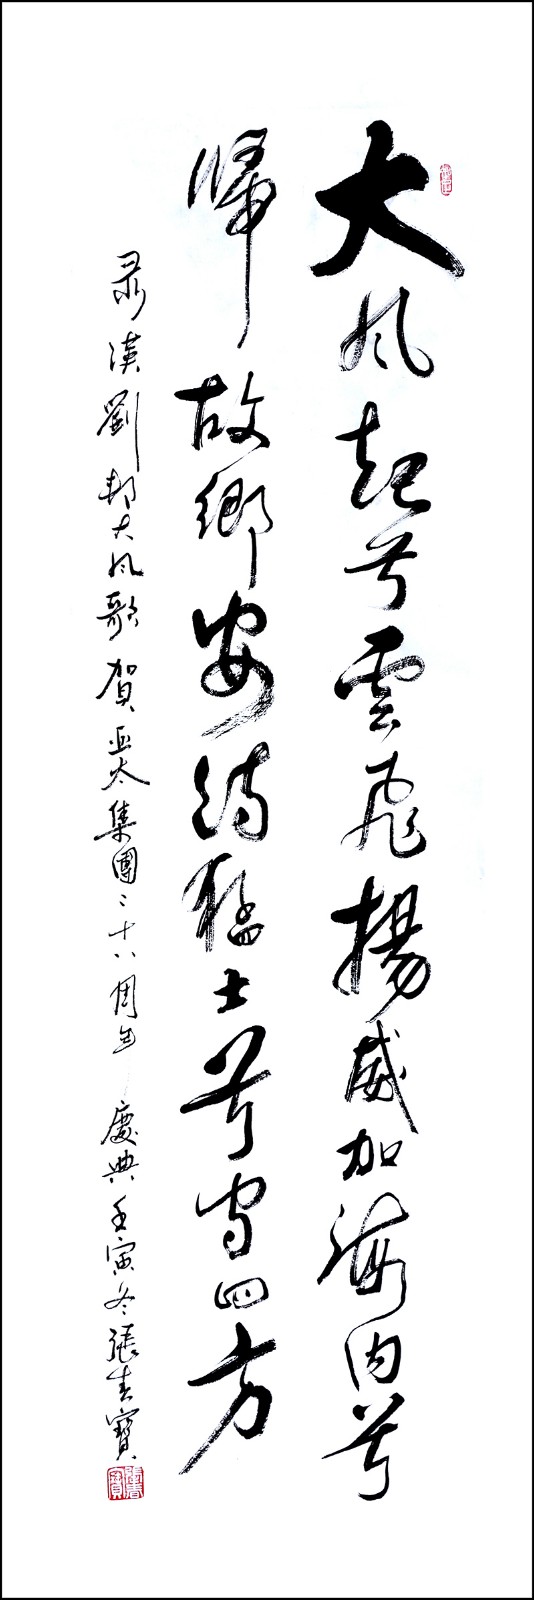 大風起兮雲飛揚威加海内兮
歸故鄉安得猛士兮守四方
录漢劉邦大风歌賀亚太集團二十八周年慶典壬寅冬張春寶